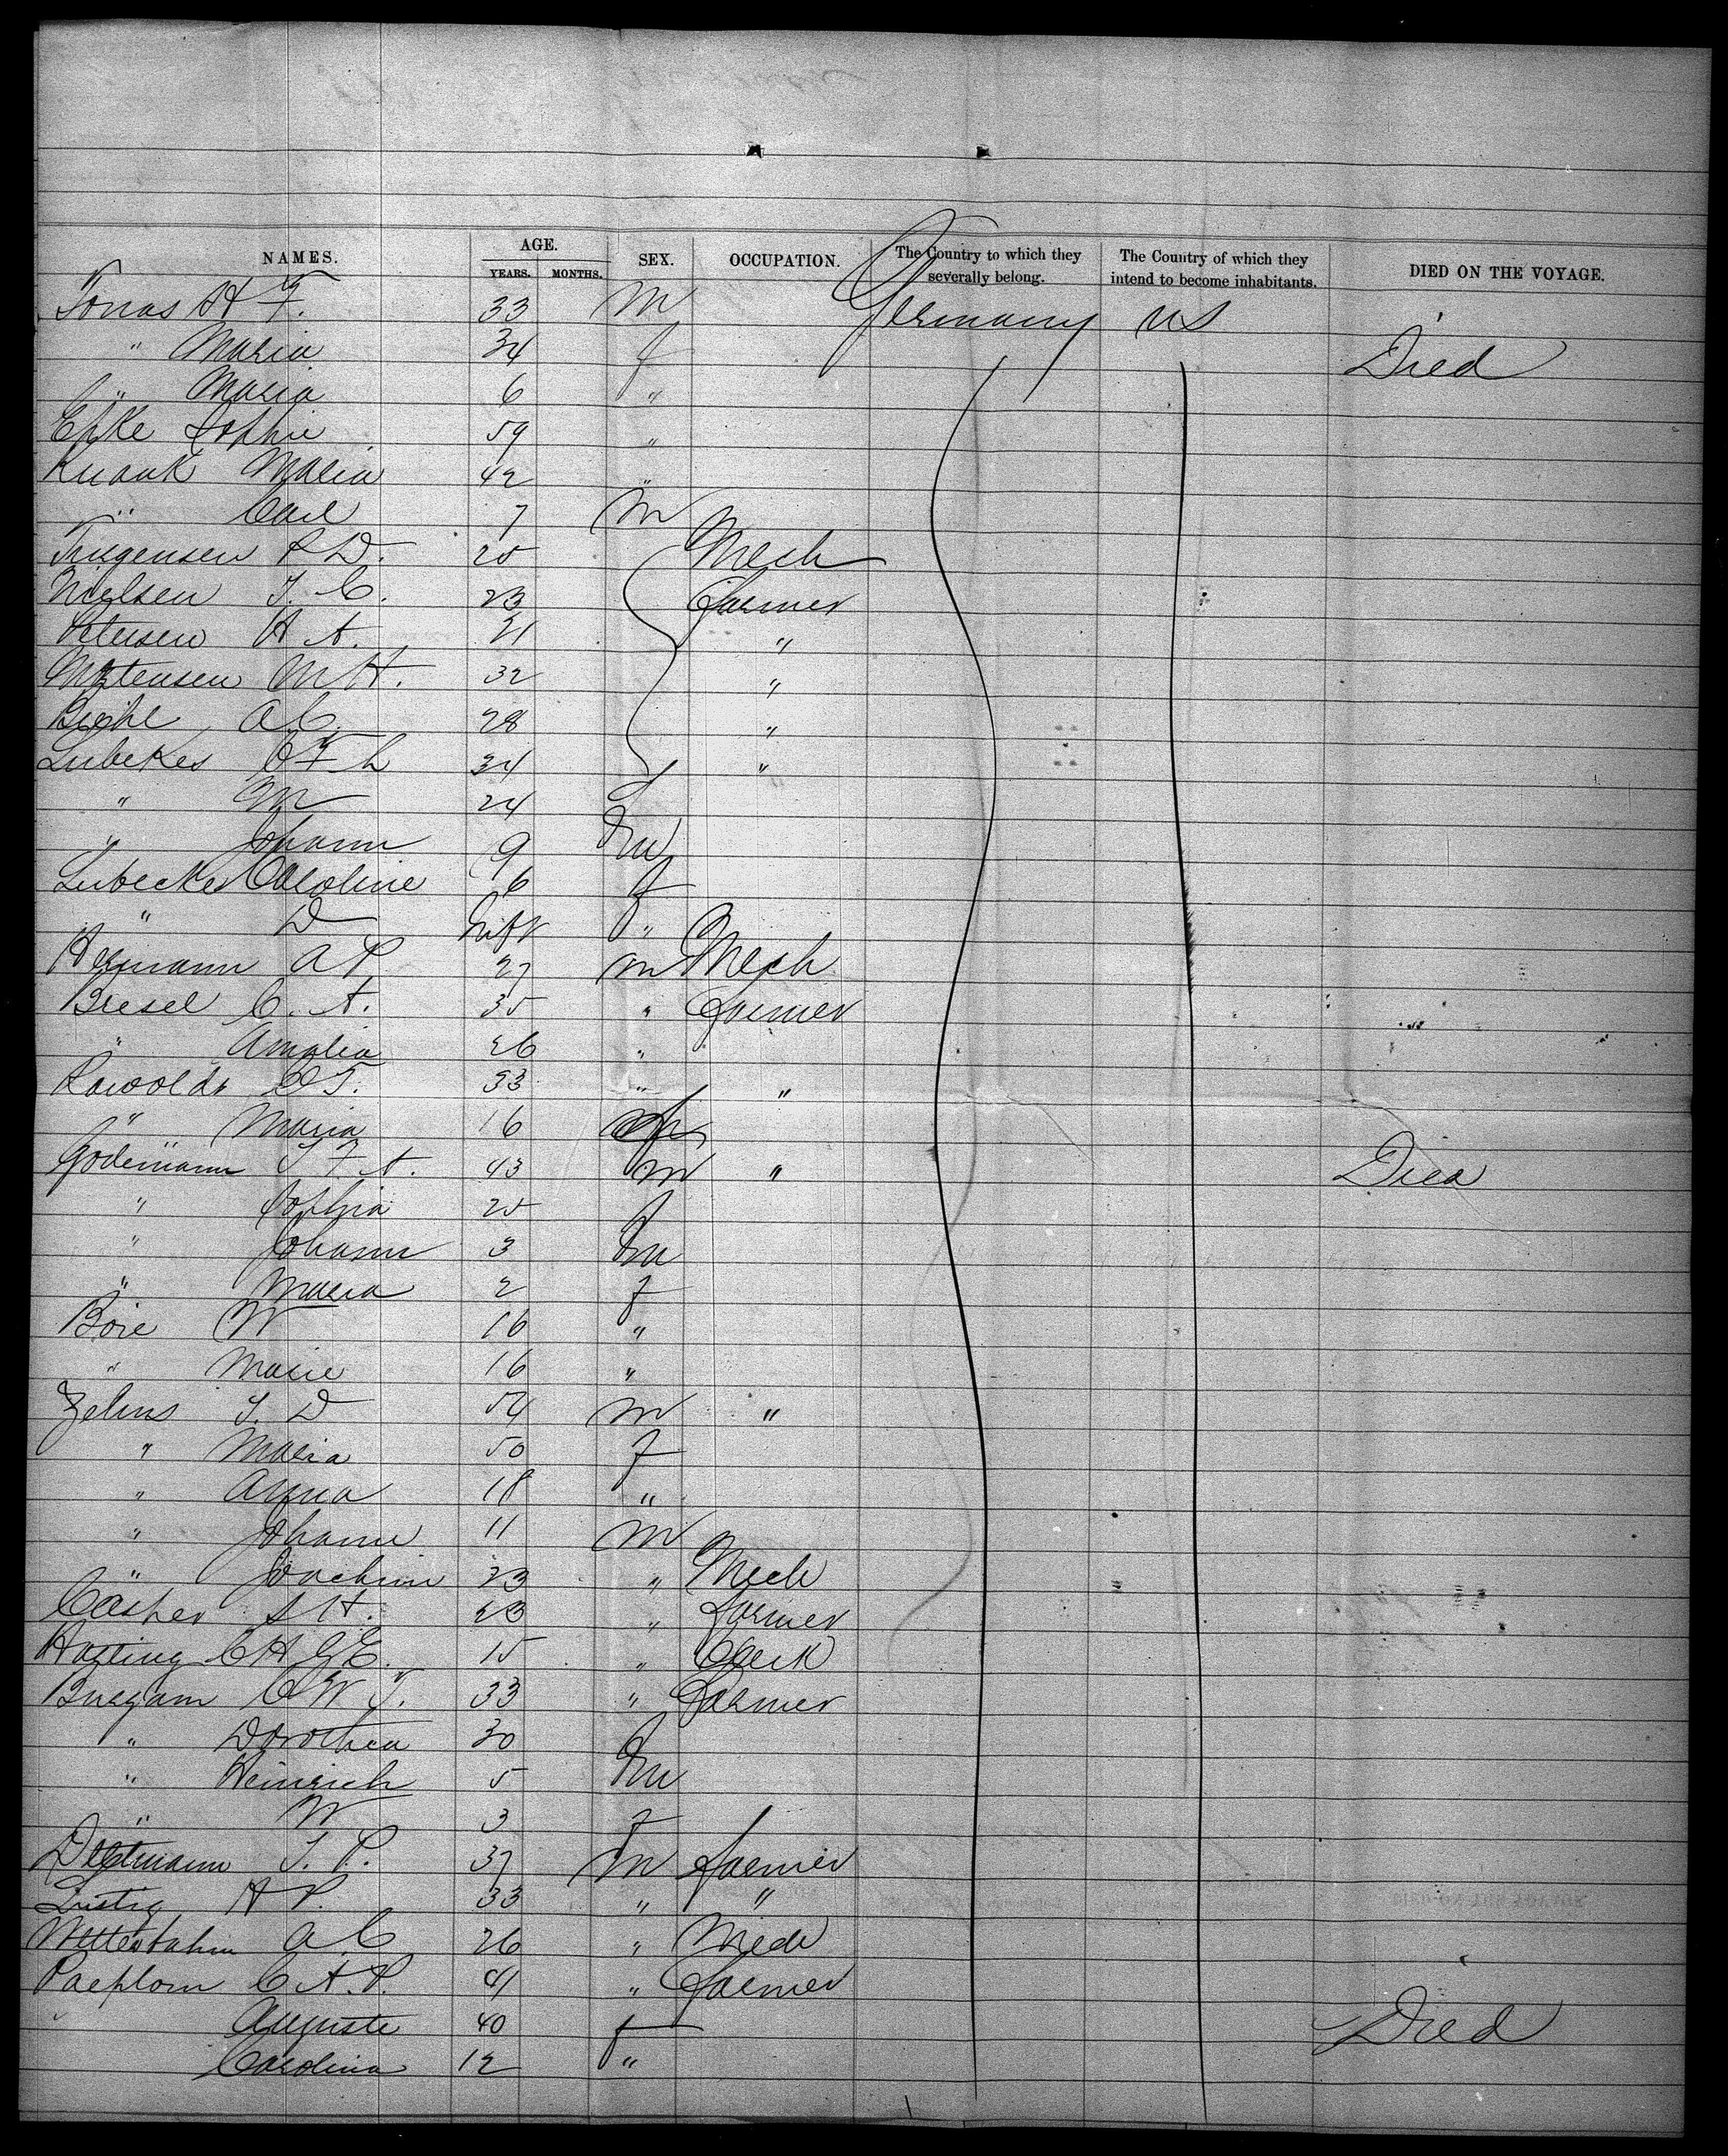 NAMES. AGE. YEARS. MONTHS. SEX. OCCUPATION. The Country to which they severally belong. The Country of which they intend to become inhabitants. DIED ON THE VOYAGE.
Jonas H F. 33 M Germany US
" Maria 34 f Died
" Maria 6 "
Epke Sophie 59 "
Knaak Maria 42 "
" Carl 7 M
Jurgensen P D. 25 Mech
Nielsen J. C. 23 Farmer
Petersen H A. 21 "
Mortensen M H. 32 "
Biehl A C. 28 "
Lubekes C F L 34 "
" M 24 f
" Johann 9 m
Lubeckes Caroline 6 f
" D Inft "
Hermann A P 27 m Mech
Bresel C. A. 35 " Farmer
" Amalia 26 "
Rawoldt C T. 33 " "
" Maria 16 f
Godemann J F A. 43 m " Died
" Sophia 25 f
" Johann 3 m
" Maria 2 f
Boie W 16 "
" Marie 16 "
Zelms J. D 54 M "
" Maria 50 f
" Anna 18 "
" Johann 11 M
" Joachim 23 " Mech
Casper S H. 23 " Farmer
Hasting C H G E. 15 " Clerk
Burgam C W J. 33 " Farmer
" Dorothea 30 f
" Heinrich 5 m
" W 3 f
Dettmann J. P. 37 M Farmer
Lustig H P. 33 " "
A. C 26 " Mech
Paeplow C A. P. 41 " Farmer
" Auguste 40 f Died
Carolina 12 "